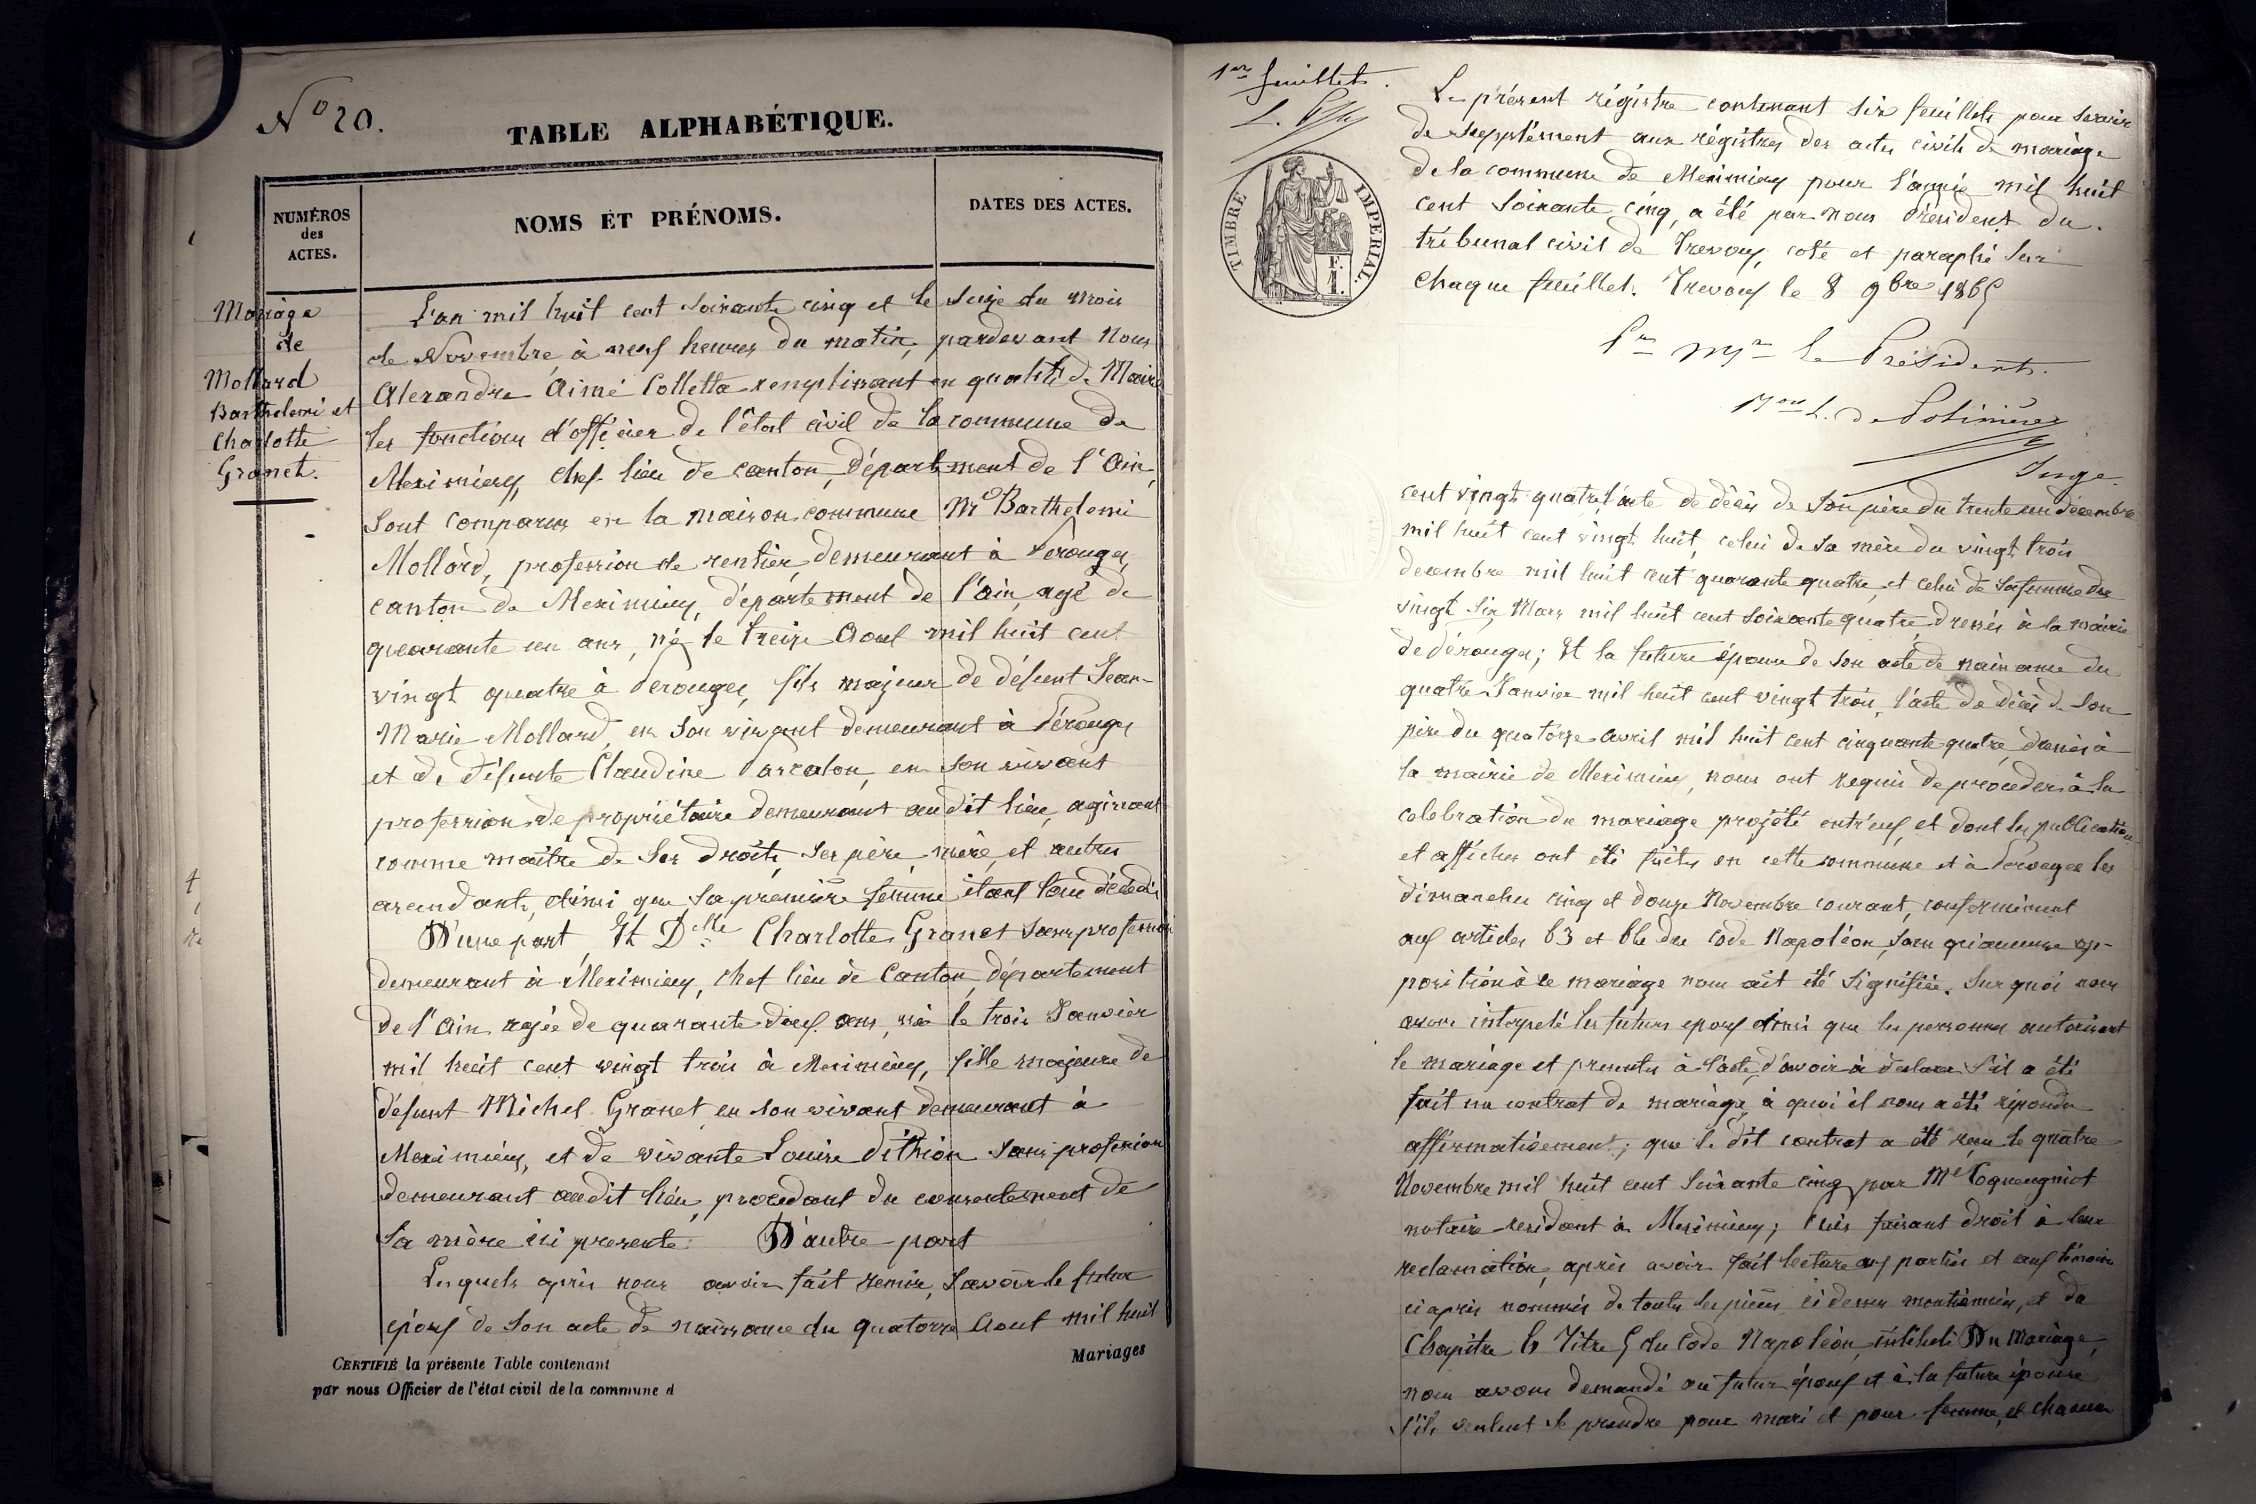 N° 20.
TABLE ALPHABÉTIQUE.
NUMÉROS
des
ACTES.
NOMS ET PRÉNOMS.
DATES DES ACTES.
Mariage
de
Mollard
Barthelemi et
Charlotte
Granet.
L'an mil huit cent soixante cinq et le seize du mois
de Novembre à neuf heures du matin, pardevant Nous
Alexandre Aimé Colletta remplissant en qualité de Maire
les fonctions d'officier de l'état civil de la commune de
Meximieux, chef lieu de canton, Département de l'Ain,
sont comparus en la maison commune Mr Barthelemi
Mollard, profession de rentier, demeurant à Pérouges
canton de Meximieux, département de l'ain, agé de
quarante un ans, né le treize Aout mil huit cent
vingt quatre à Perouges, fils majeur de défunt Jean-
Marie Mollard, en son vivant demeurant à Pérouges
et de défunte Claudine Parcalon, en son vivant
profession de propriétaire demeurant audit lieu, agissant
comme maître de ses droits, ses père, mère, et autres
ascendants, ainsi que sa première femme étant tous décédés
D'une part Et Dlle Charlotte Granet sans profession
demeurant à Meximieux, chef lieu de Canton, département
de l'Ain, agée de quarante deux ans, née le trois Janvier
mil huit cent vingt trois à Meximieux, fille majeure de
défunt Michel Granet en son vivant demeurant à
Meximieux, et de vivante Louise Péthion sans profession
demeurant audit lieu, procedant du consentement de
sa mère ici presente. D'autre part
Lesquels après nous avoir fait remise, savoir le futur
époux de son acte de naissance du quatorze Aout mil huit
CERTIFIÉ la présente Table contenant
par nous Officier de l'état civil de la commune d
Mariages
1er feuillet.
TIMBRE IMPERIAL.
Le présent régistre contenant six feuillets pour servir
de supplément aux régistres des actes civils de mariage
de la commune de Meximieux pour l'année mil huit
cent soixante cinq, a été par nous Président du
tribunal civil de Trevoux, coté et paraphé sur
chaque feuillet. Trevoux le 8 9bre 1865
Pr Mr le Président.
Juge.
cent vingt quatre, l'acte de décès de son père du trente un décembre
mil huit cent vingt huit, celui de sa mère du vingt trois
decembre mil huit cent quarante quatre, et celui de sa femme du
vingt six Mars mil huit cent soixante quatre, dressés à la mairie
de Pérouges; Et la future épouse de son acte de naissance du
quatre Janvier mil huit cent vingt trois, l'acte de décès de son
père du quatorze avril mil huit cent cinquante quatre, dressés à
la mairie de Meximieux, nous ont requis de proceder à la
celebration du mariage projété entr'eux, et dont les publications
et affiches ont été faites en cette commune et à Perouges les
dimanches cinq et douze Novembre courant, conformément
aux articles 63 et 64 du Code Napoléon, sans qu'aucune op-
position à ce mariage nous ait été signifiée. Sur quoi nous
avons interpelé les futurs epoux ainsi que les personnes autorisant
le mariage et presentes à l'acte, d'avoir à déclarer s'il a été
fait un contrat de mariage, à quoi il nous a été répondu
affirmativement; que le dit contrat a été reçu le quatre
Novembre mil huit cent soixante cinq par Me Coqueugniot
notaire residant à Meximieux; Puis faisant droit à leur
reclamation, après avoir fait lecture aux parties et aux témoins
ci après nommés de toutes les pièces ci dessus mentionnées, et du
Chapitre 6 Titre 5 du Code Napoléon, intitulé Du Mariage,
nous avons demandé au futur époux et à la future épouse
s'ils veulent se prendre pour mari et pour femme, et chacun